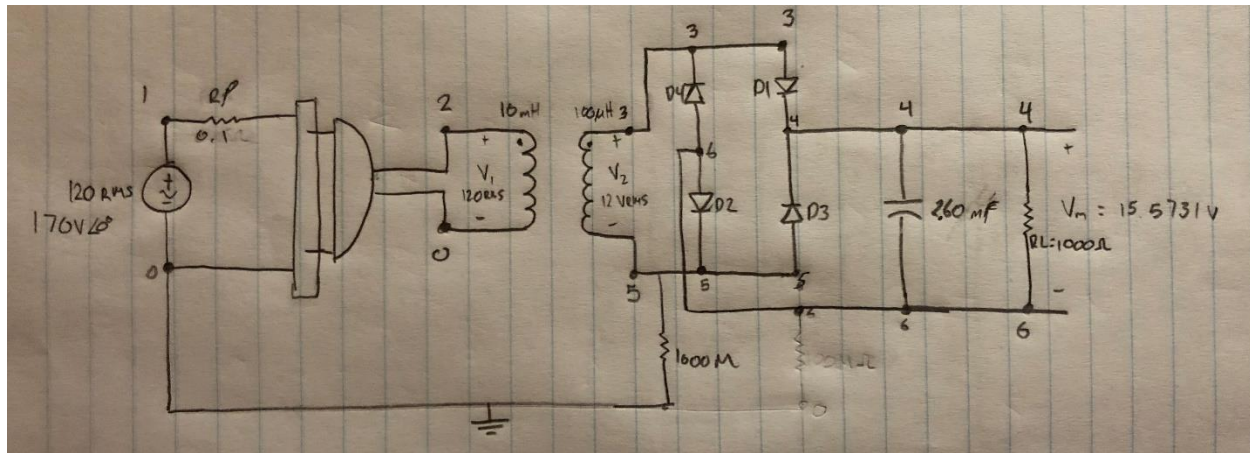 1
RP
0.1Ω
120 RMS
170V∠0°
+
-
0
2
10mH
+
V₁
120RMS
-
0
100μH
3
+
V₂
12 VRMS
-
5
3
3
D4
D1
4
6
D2
D3
5
5
6
1000M
0
4
4
+
260 mF
Vm = 15.5731V
RL=1000Ω
-
6
6